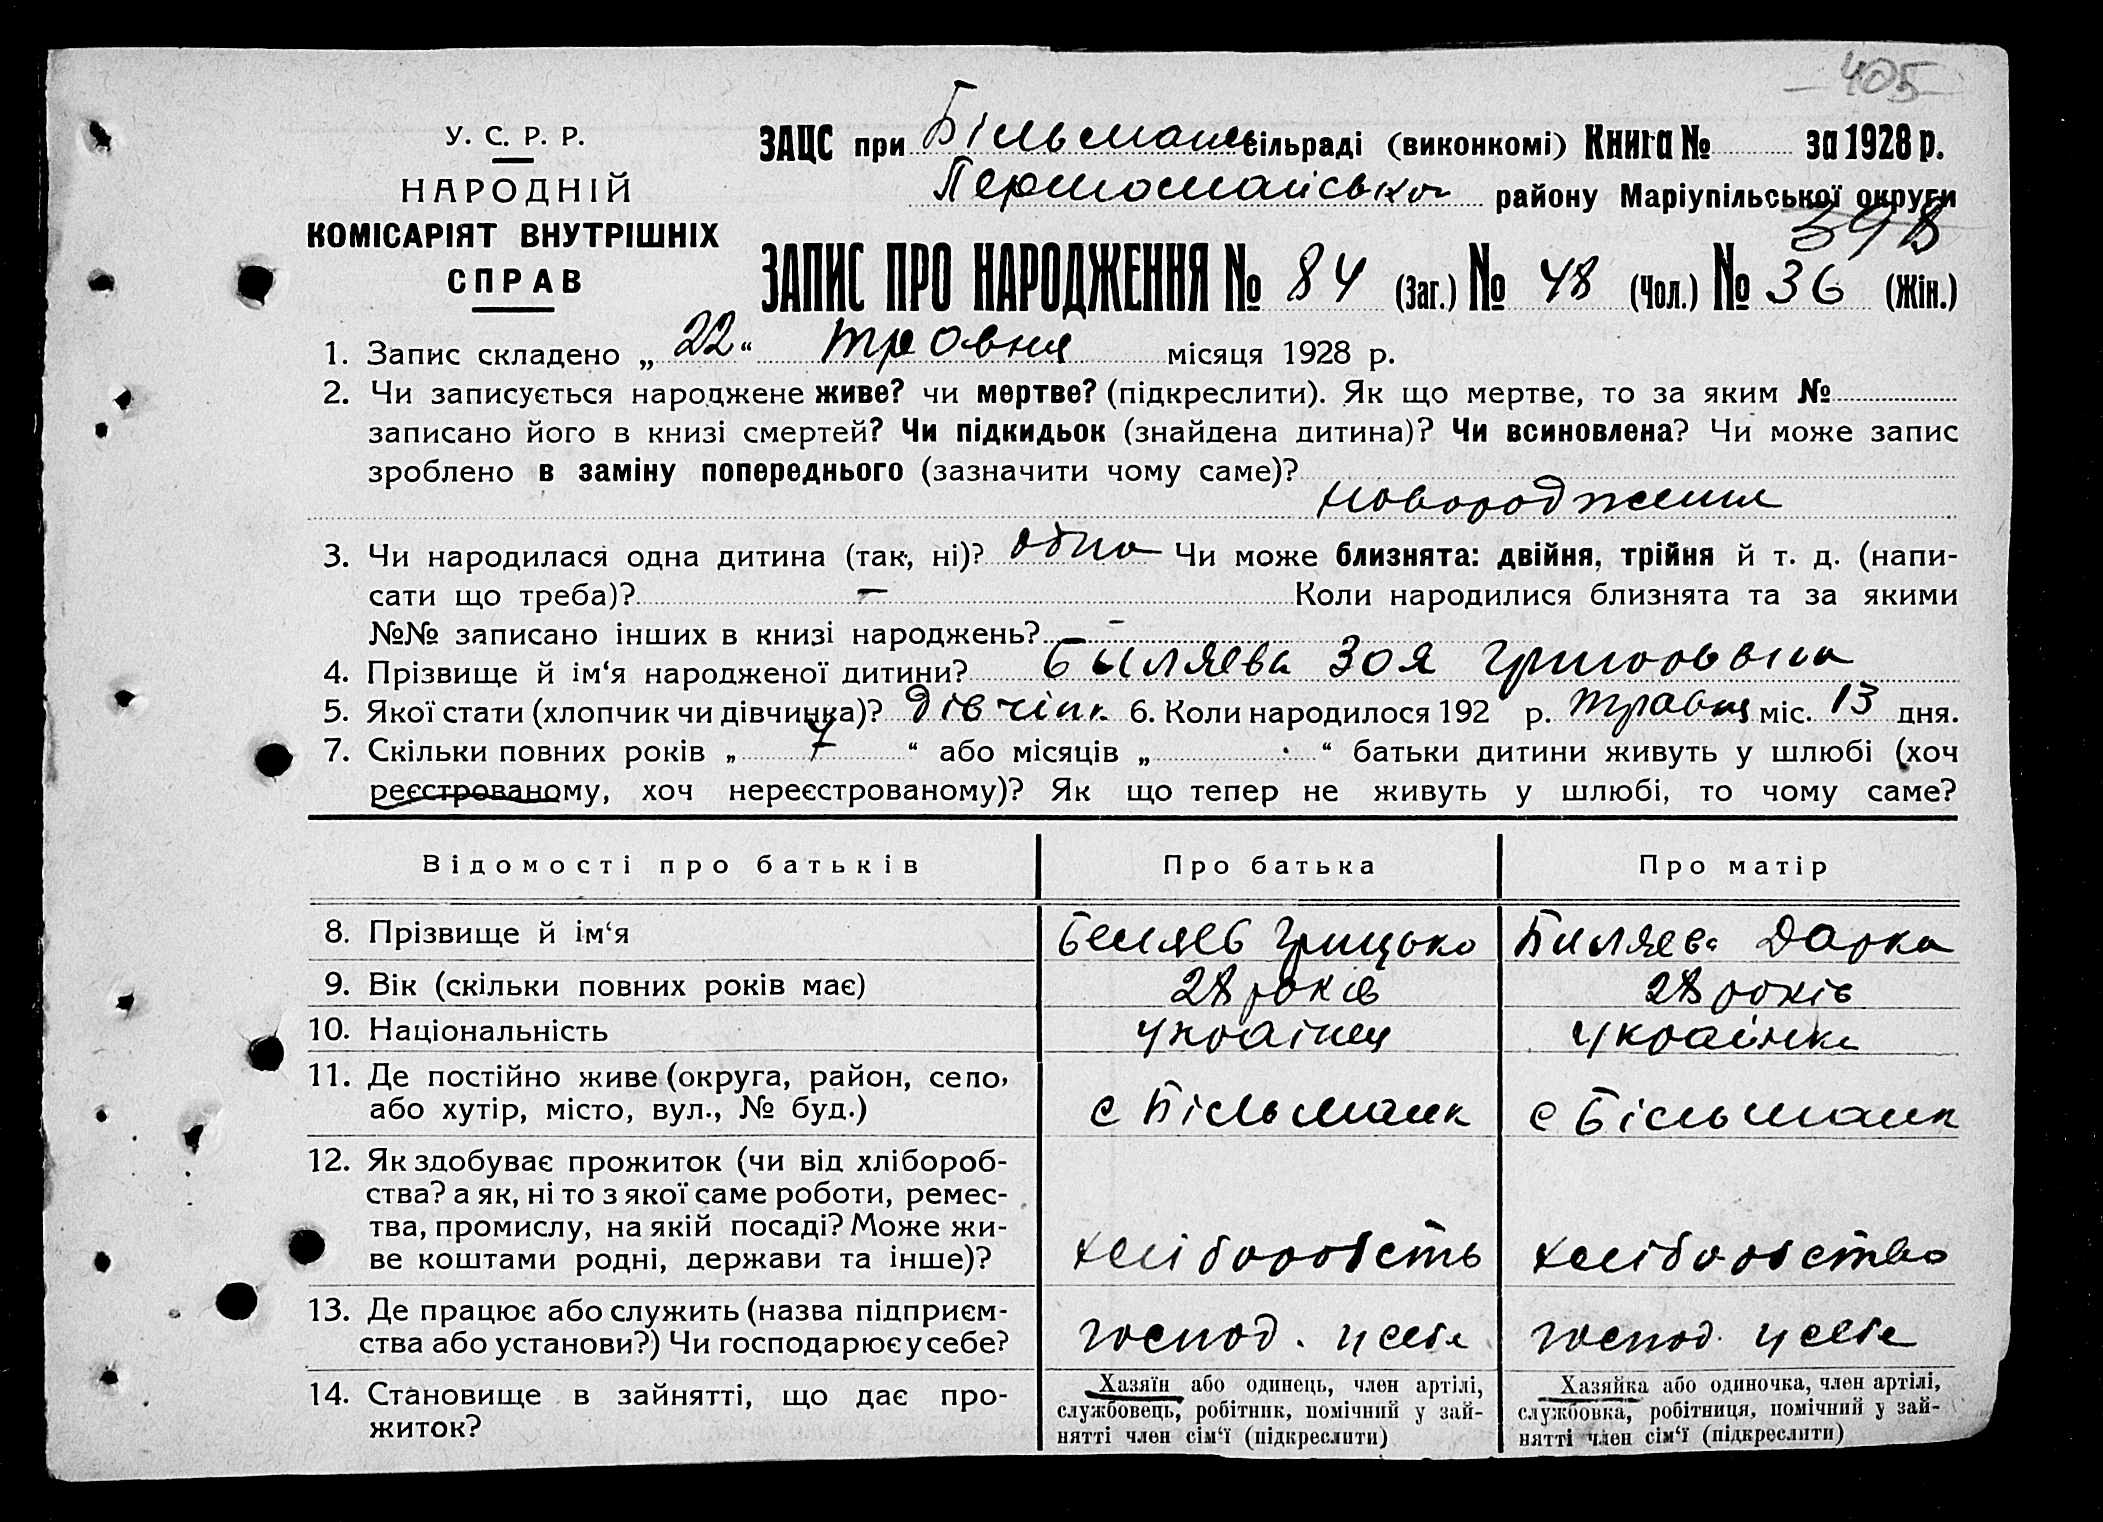 405
У. С. Р. Р.
НАРОДНІЙ
КОМІСАРІЯТ ВНУТРІШНІХ
СПРАВ
ЗАЦС при Більман сільраді (виконкомі) Книга № за 1928 р.
Першомайсько району Маріупільської округи
398
ЗАПИС ПРО НАРОДЖЕННЯ № 84 (Заг.) № 48 (Чол.) № 36 (Жін.)
1. Запис складено „ 22 “ травня місяця 1928 р.
2. Чи записується народжене живе? чи мертве? (підкреслити). Як що мертве, то за яким №
записано його в книзі смертей? Чи підкидьок (знайдена дитина)? Чи всиновлена? Чи може запис
зроблено в заміну попереднього (зазначити чому саме)?
новородження
3. Чи народилася одна дитина (так, ні)? одна Чи може близнята: двійня, трійня й т. д. (напи-
сати що треба)? — Коли народилися близнята та за якими
№№ записано інших в книзі народжень? —
4. Прізвище й ім‘я народженої дитини? Биляева Зоя Григорьвна
5. Якої стати (хлопчик чи дівчинка)? дівчінк 6. Коли народилося 192 р. травня міс. 13 дня.
7. Скільки повних років „ 7 “ або місяців „ “ батьки дитини живуть у шлюбі (хоч
реєстрованому, хоч нереєстрованому)? Як що тепер не живуть у шлюбі, то чому саме?
Відомості про батьків Про батька Про матір
8. Прізвище й ім‘я Беляев Грицько Биляева Дарка
9. Вік (скільки повних років має) 28 років 28 років
10. Національність українец українка
11. Де постійно живе (округа, район, село,
або хутір, місто, вул., № буд.) с Більманк с Більманк
12. Як здобуває прожиток (чи від хлібороб-
ства? а як, ні то з якої саме роботи, ремес-
тва, промислу, на якій посаді? Може жи-
ве коштами родні, держави та інше)? хліборобсть хліборобство
13. Де працює або служить (назва підприєм-
ства або установи?) Чи господарює у себе? господ. у себе господ. у себе
14. Становище в зайнятті, що дає про-
житок?
Хазяїн або одинець, член артілі,
службовець, робітник, помічний у зай-
нятті член сім‘ї (підкреслити)
Хазяйка або одиночка, член артілі,
службовка, робітниця, помічний у зай-
нятті член сім‘ї (підкреслити)